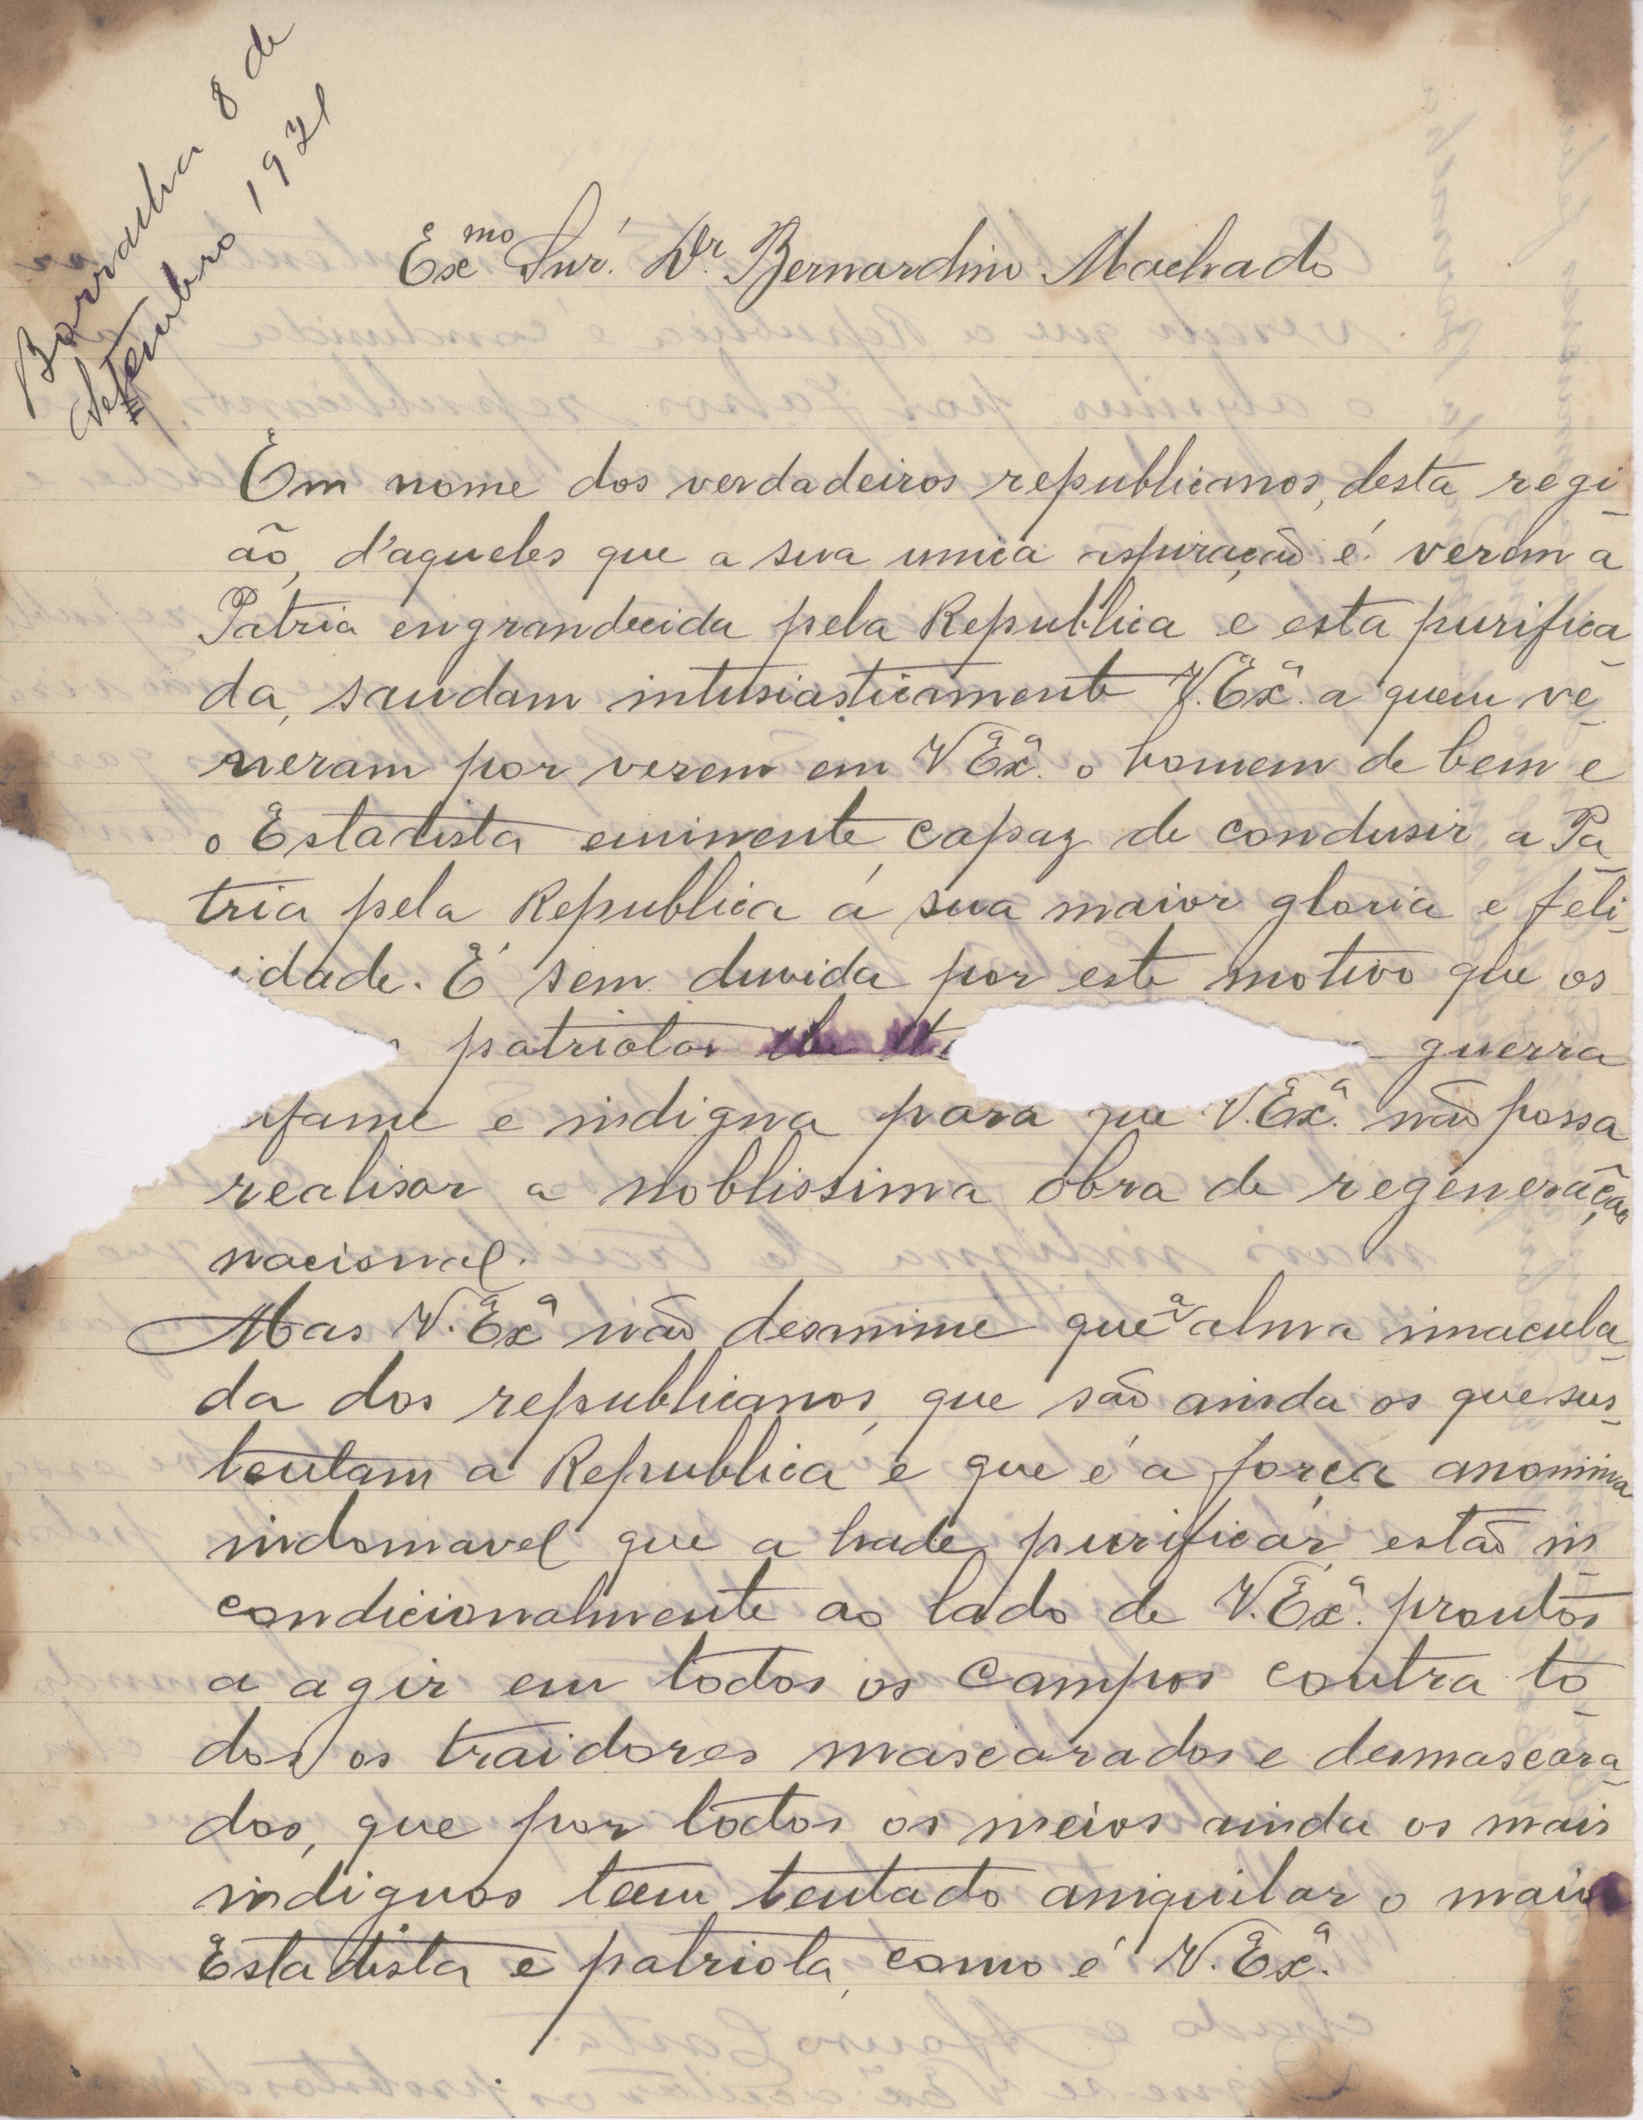 Barracha 8 de
Setembro 1921
Exmo Snr. Dr. Bernardino Machado
Em nome dos verdadeiros republicanos, desta regi-
ão, d'aqueles que a sua unica aspiração é verem a
Patria engrandecida pela Republica e esta purifica
da, saudam intusiasticamente V. Exª. a quem ve-
neram por verem em V Exª. o homem de bem e
o Estadista eminente, capaz de condusir a Pa-
tria pela Republica á sua maior gloria e feli-
idade. É sem duvida por este motivo que os
patriotas guerra
fame e indigna para que V. Exª. não possa
realisar a noblissima obra de regeneração
nacional.
Mas V. Exª não desanime que a alma imacula-
da dos republicanos, que são ainda os que sus-
tentam a Republica e que é a força anonima
indomavel que a hade purificar, estão in-
condicionalmente ao lado de V. Exª. prontos
a agir em todos os campos contra to-
dos os traidores mascarados e desmascara-
dos, que por todos os meios ainda os mais
indignos teem tentado aniquilar o maior
Estadista e patriota, como é V. Exª.